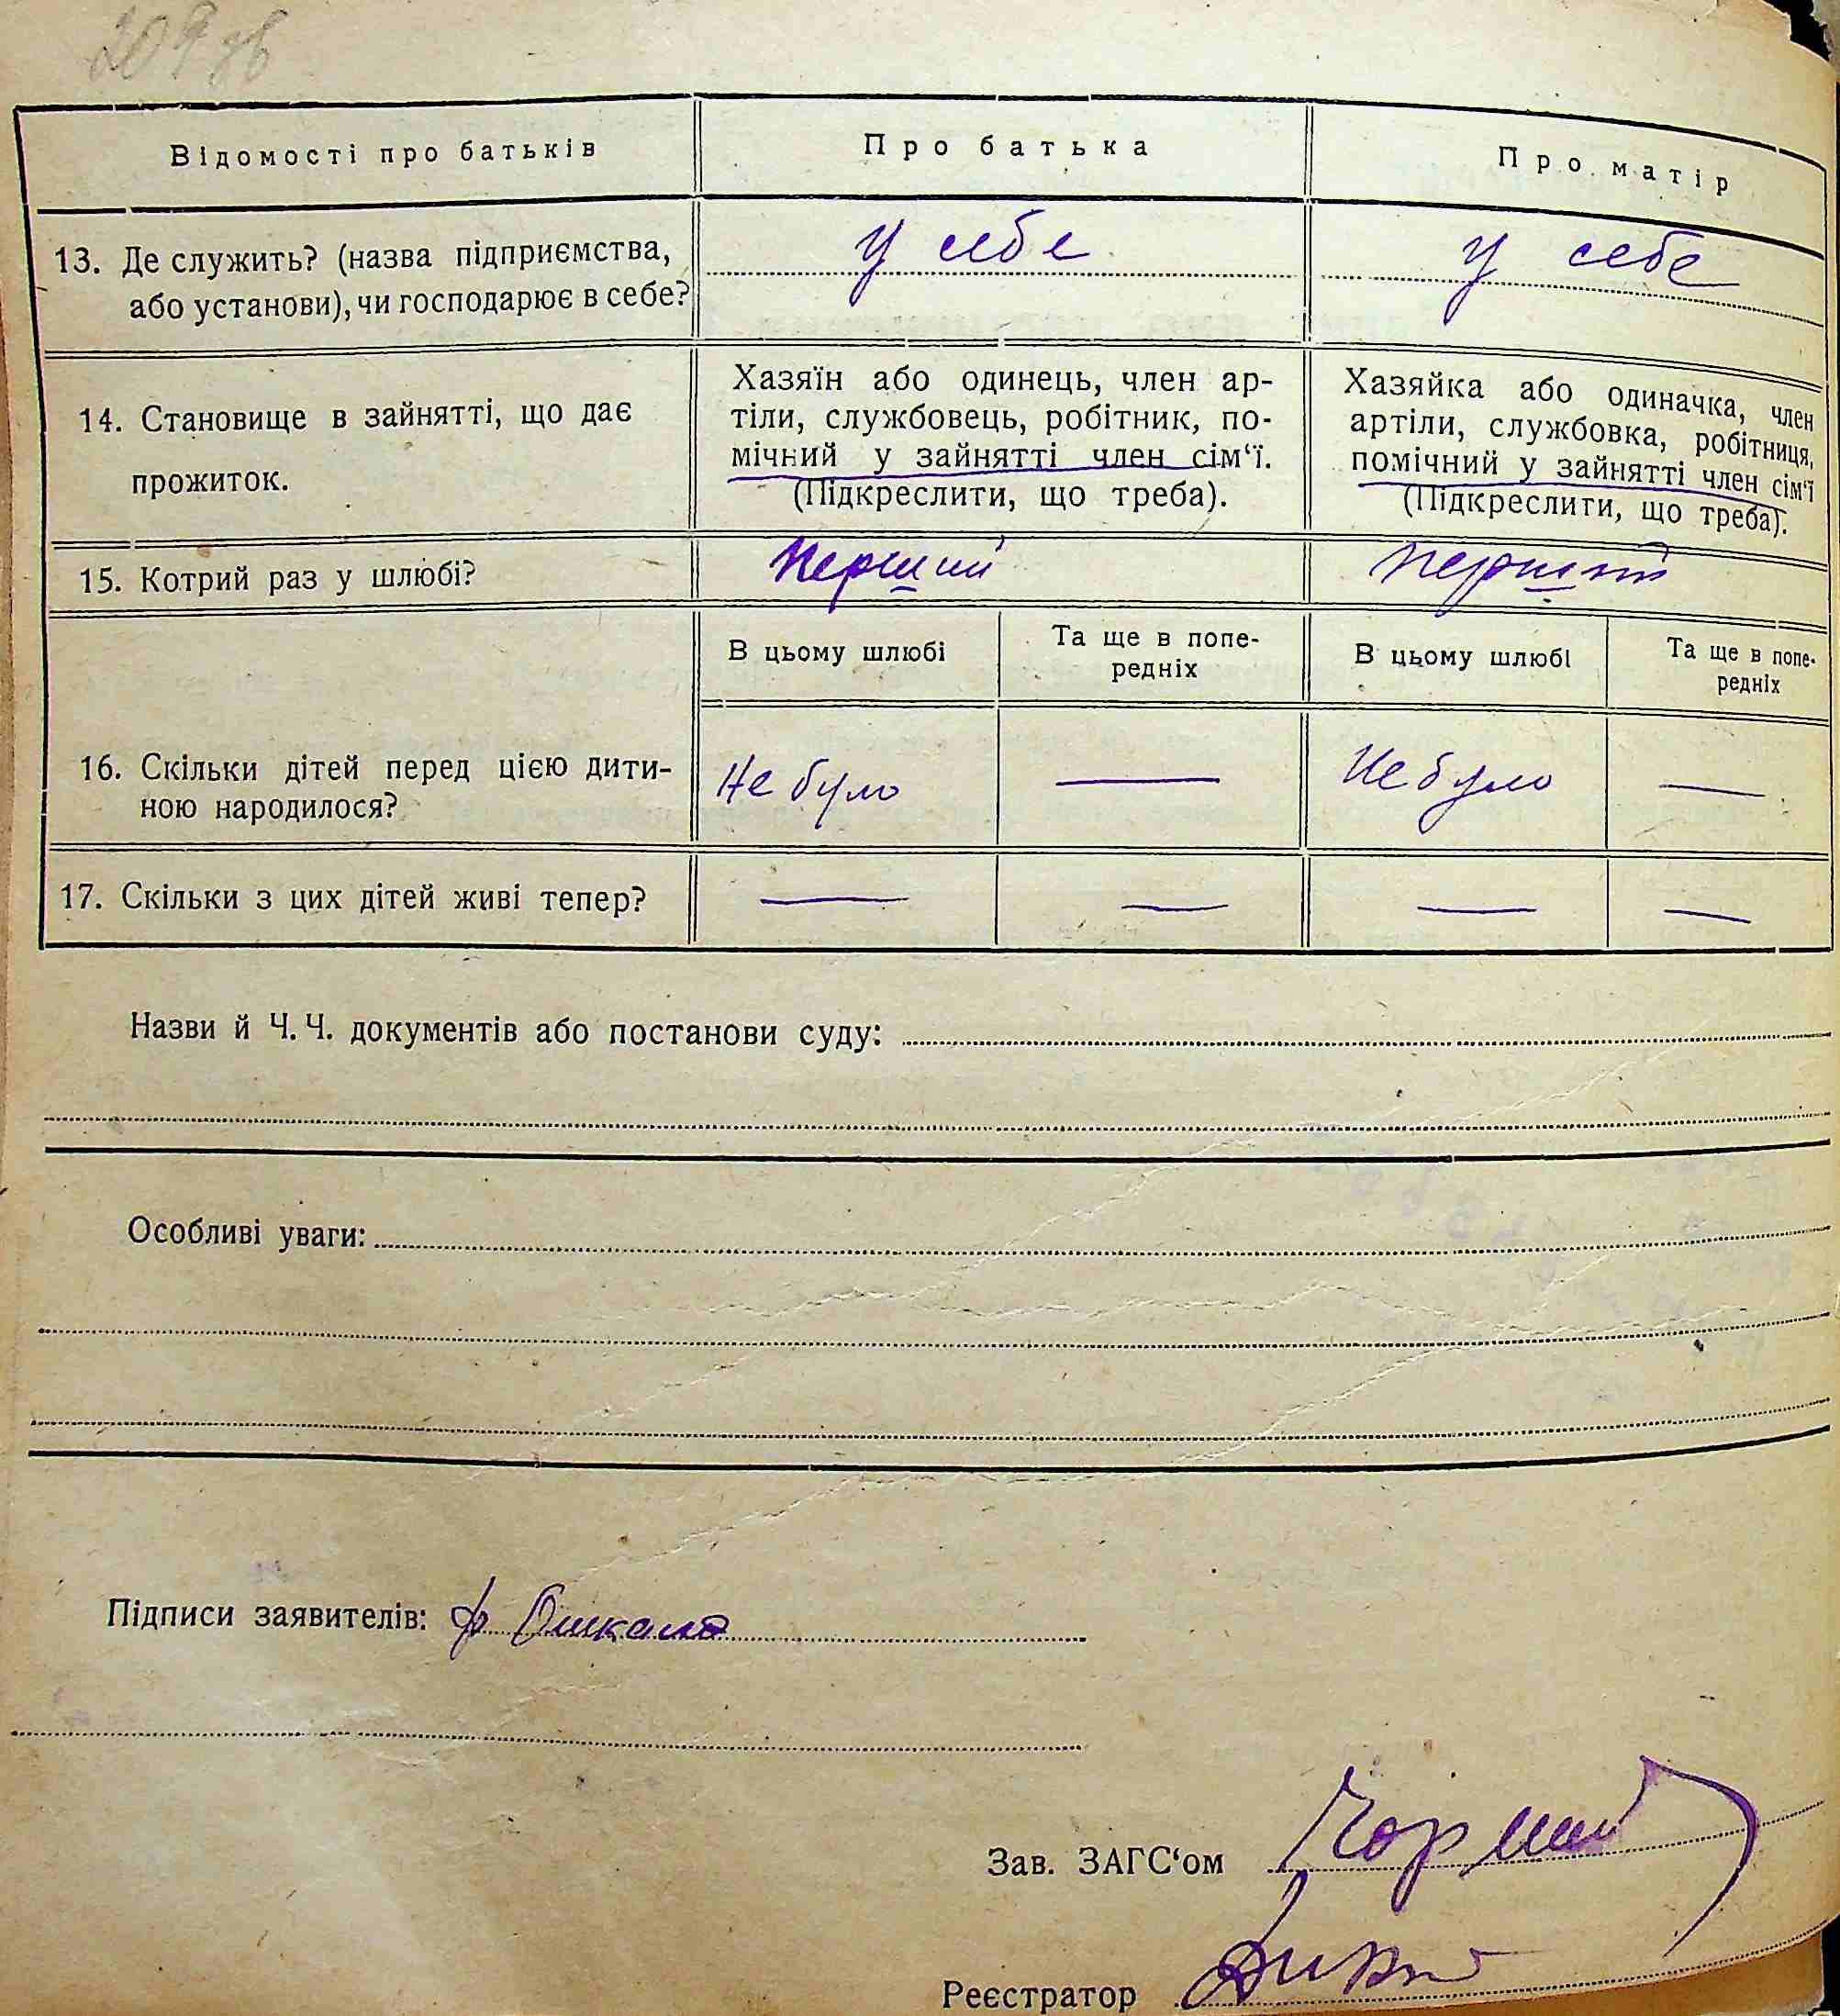 209 зв
Відомості про батьків
Про батька
Про матір
13. Де служить? (назва підприємства,
або установи), чи господарює в себе?
у себе
у себе
14. Становище в зайнятті, що дає
прожиток.
Хазяїн або одинець, член ар-
тіли, службовець, робітник, по-
мічний у зайнятті член сім‘ї.
(Підкреслити, що треба).
Хазяйка або одиначка, член
артіли, службовка, робітниця,
помічний у зайнятті член сім‘ї
(Підкреслити, що треба).
15. Котрий раз у шлюбі?
перший
перший
В цьому шлюбі
Та ще в попе-
редніх
В цьому шлюбі
Та ще в попе-
редніх
16. Скільки дітей перед цією дити-
ною народилося?
Не було
—
Не було
—
17. Скільки з цих дітей живі тепер?
—
—
—
—
Назви й Ч. Ч. документів або постанови суду:
Особливі уваги:
Підписи заявителів:
Зав. ЗАГС‘ом
Реєстратор